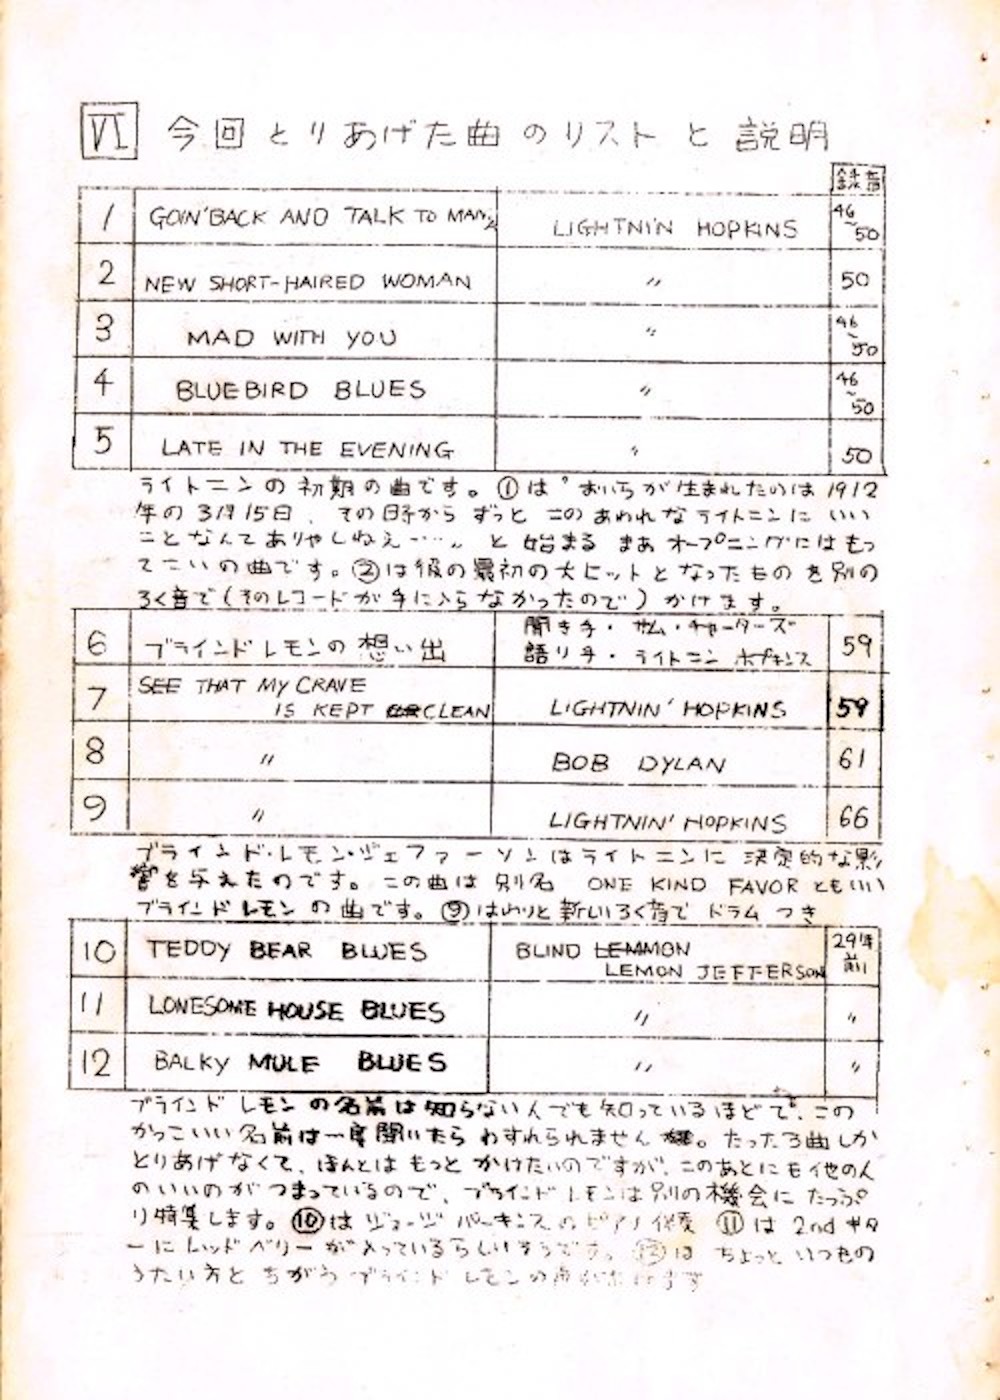 VI 今回 とりあげた曲 のリスト と 説明
録音
1 GOIN' BACK AND TALK TO MAMA LIGHTNIN HOPKINS 46~50
2 NEW SHORT-HAIRED WOMAN 〃 50
3 MAD WITH YOU 〃 46~50
4 BLUEBIRD BLUES 〃 46~50
5 LATE IN THE EVENING 〃 50
ライトニンの初期の曲です。①は"おいらが生まれたのは1912
年の3月15日、その日からずっとこのあわれなライトニンにいい
ことなんてありゃしねえ……"と始まるまあオープニングにはもっ
てこいの曲です。②は彼の最初の大ヒットとなったものを別の
ろく音で(そのレコードが手に入らなかったので)かけます。
6 ブラインドレモンの想い出 聞き手・サム・チャーターズ 59
語り手・ライトニン ホプキンス
7 SEE THAT MY CRAVE
IS KEPT CLEAN LIGHTNIN' HOPKINS 59
8 〃 BOB DYLAN 61
9 〃 LIGHTNIN' HOPKINS 66
ブラインド・レモン・ジェファーソンはライトニンに決定的な影
響を与えたのです。この曲は別名 ONE KIND FAVOR ともいい
ブラインドレモンの曲です。⑨はわりと新しいろく音でドラムつき
10 TEDDY BEAR BLUES BLIND LEMMON 29年
LEMON JEFFERSON 前
11 LONESOME HOUSE BLUES 〃 〃
12 BALKY MULE BLUES 〃 〃
ブラインドレモンの名前は知らない人でも知っているほどで、この
かっこいい名前は一度聞いたらわすれられません。たった3曲しか
とりあげなくて、ほんとはもっとかけたいのですが、このあとにも他の人
のいいのがつまっているので、ブラインドレモンは別の機会にたっぷ
り特集します。⑩はジョージ パーキンスのピアノ伴奏 ⑪は2ndギタ
ーにレッドベリーが入っているらしいそうです。⑫はちょっといつもの
うたい方とちがうブラインドレモンの声が